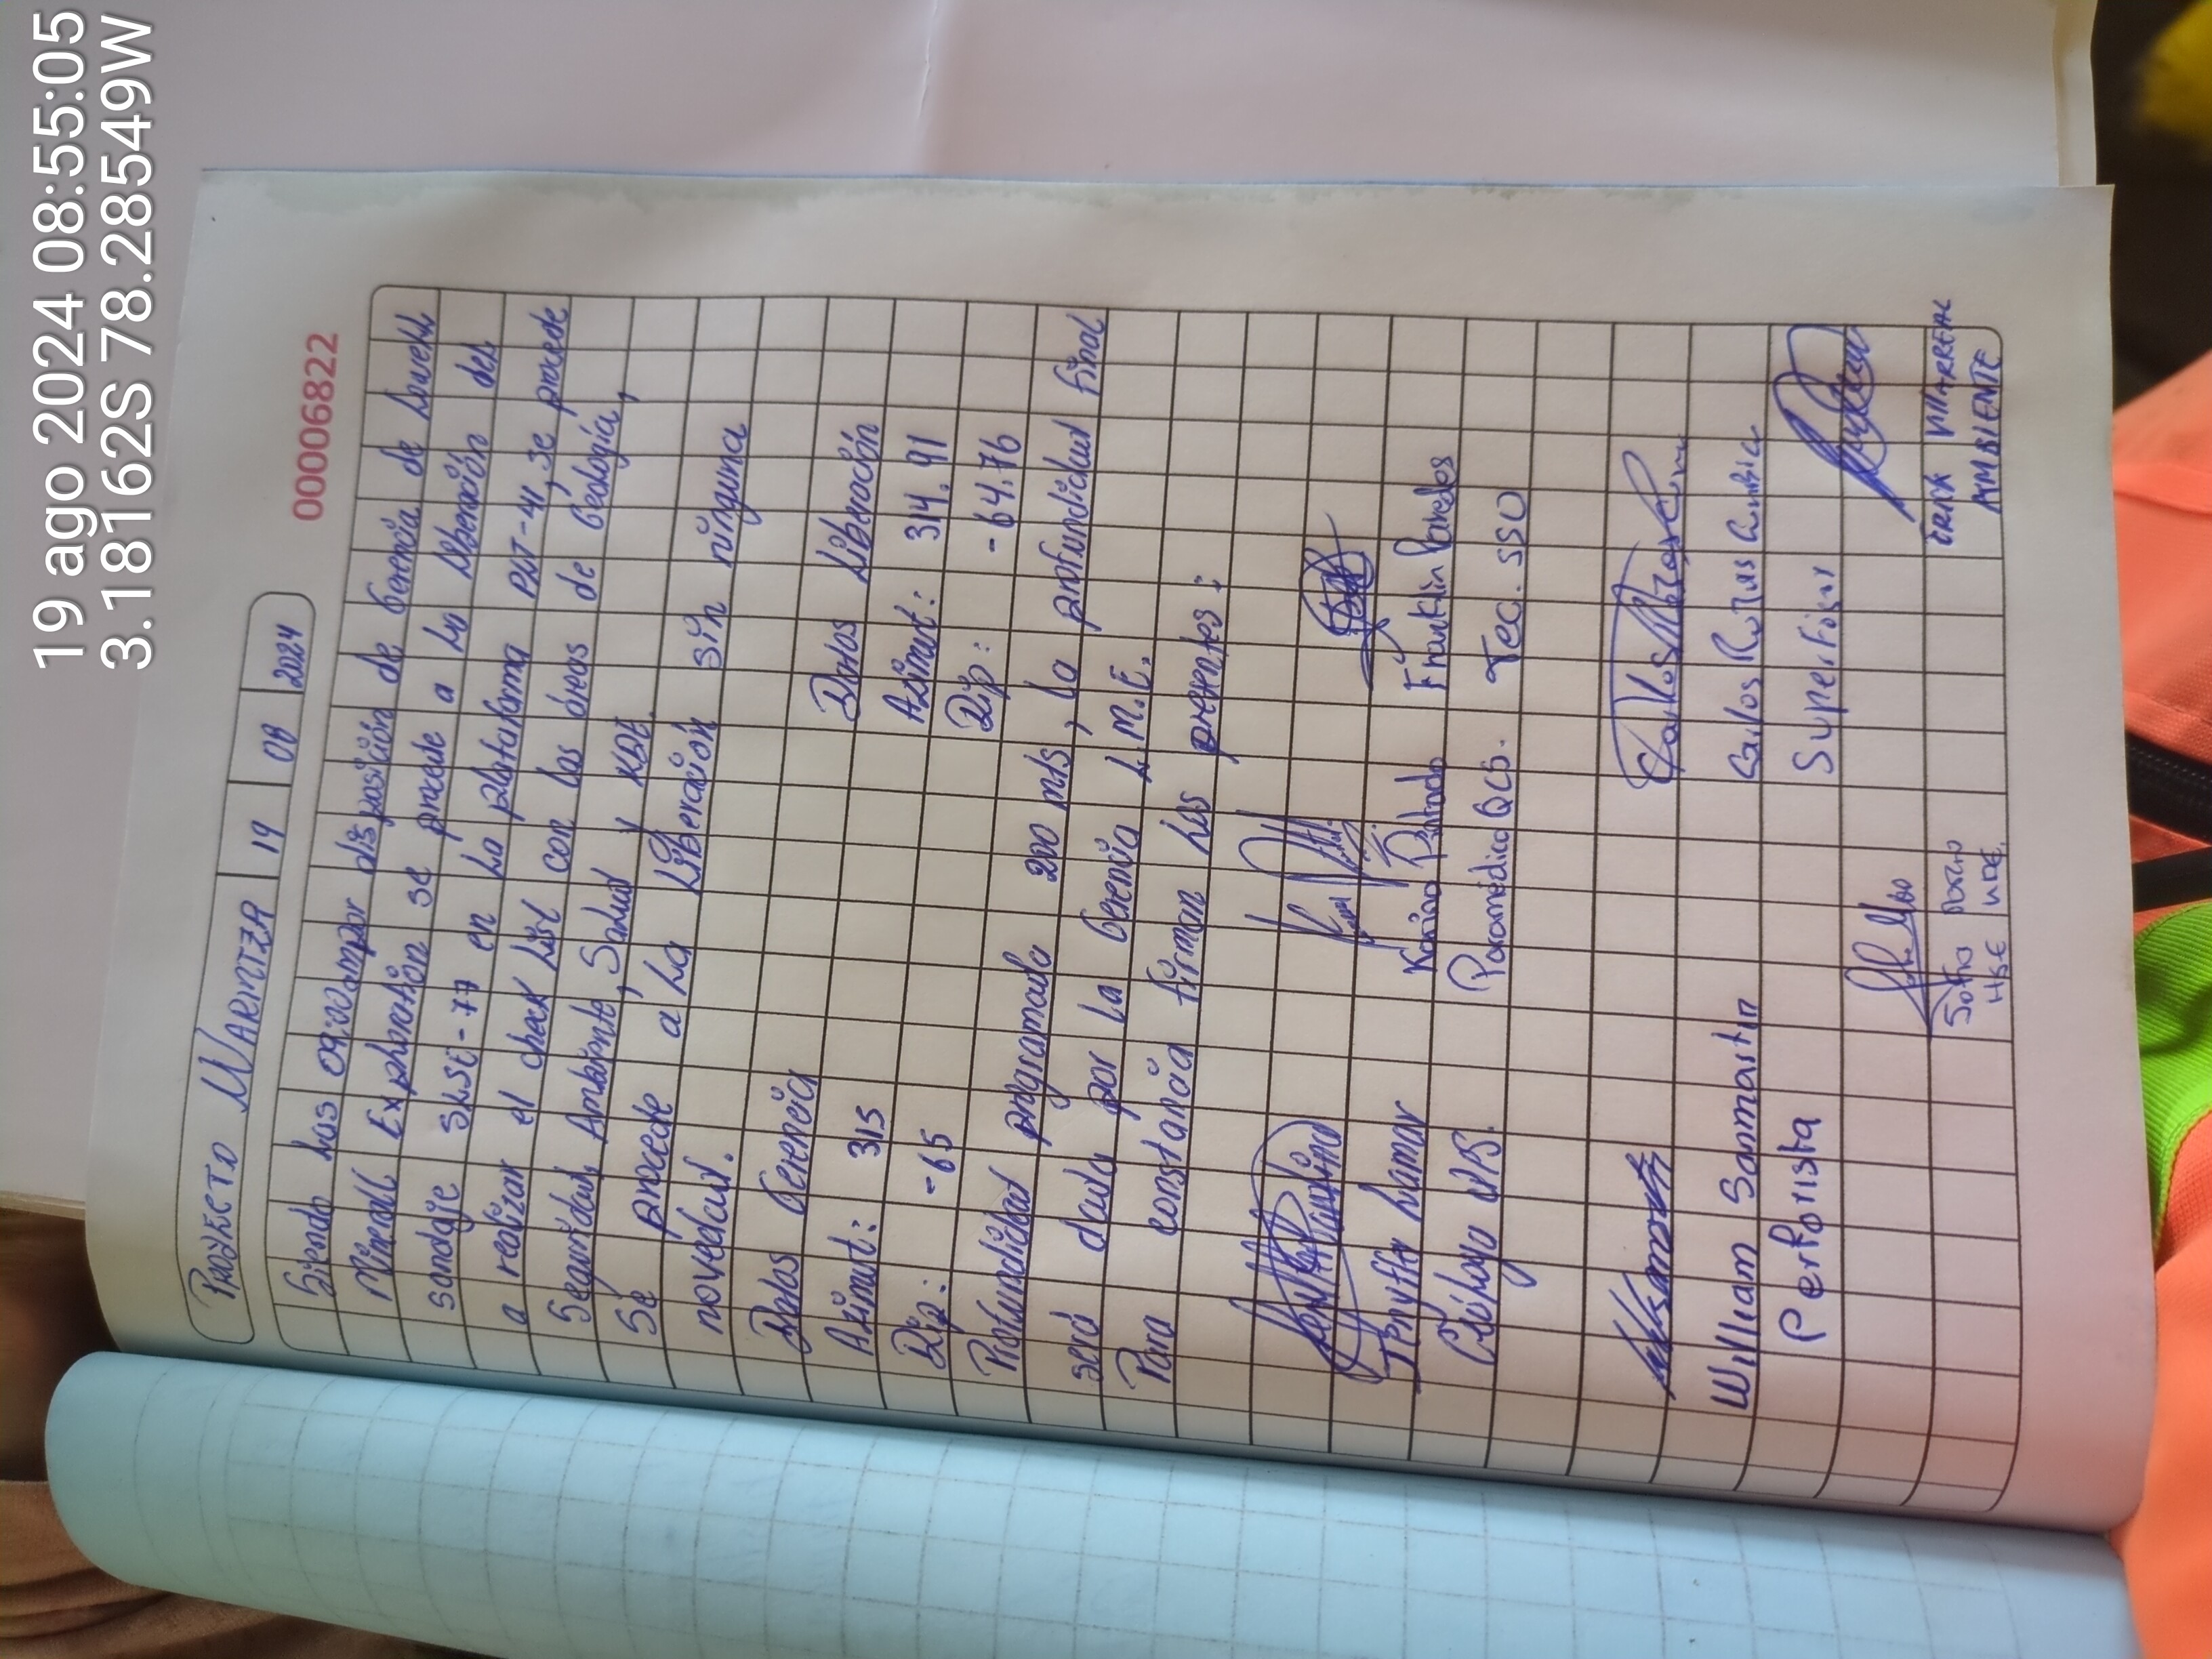 19 ago 2024 08:55:05
3.18162S 78.28549W
00006822
PROYECTO WARINTZA 19 08 2024
Siendo las 09:00am por disposición de Gerencia de Lowell
Mineral Exploration se procede a la liberación del
sondaje SLSE-77 en la plataforma PLT-41, se procede
a realizar el check list con las áreas de Geología,
Seguridad, Ambiente, Salud y KDE.
Se procede a la liberación sin ninguna
novedad.
Datos Gerencia Datos Liberación
Azimut: 315 Azimut: 314.91
Dip: -65 Dip: -64.76
Profundidad programada 200 mts, la profundidad final
será dada por la Gerencia L.M.E.
Para constancia firman los presentes:
Jenyffer Lamar Karina Pintado Franklin Paredes
Geóloga Paramédico Tec. SSO
William Sanmartin Carlos Rojas
Perforista Supervisor
ERIKA VILLARREAL
HSE AMBIENTE